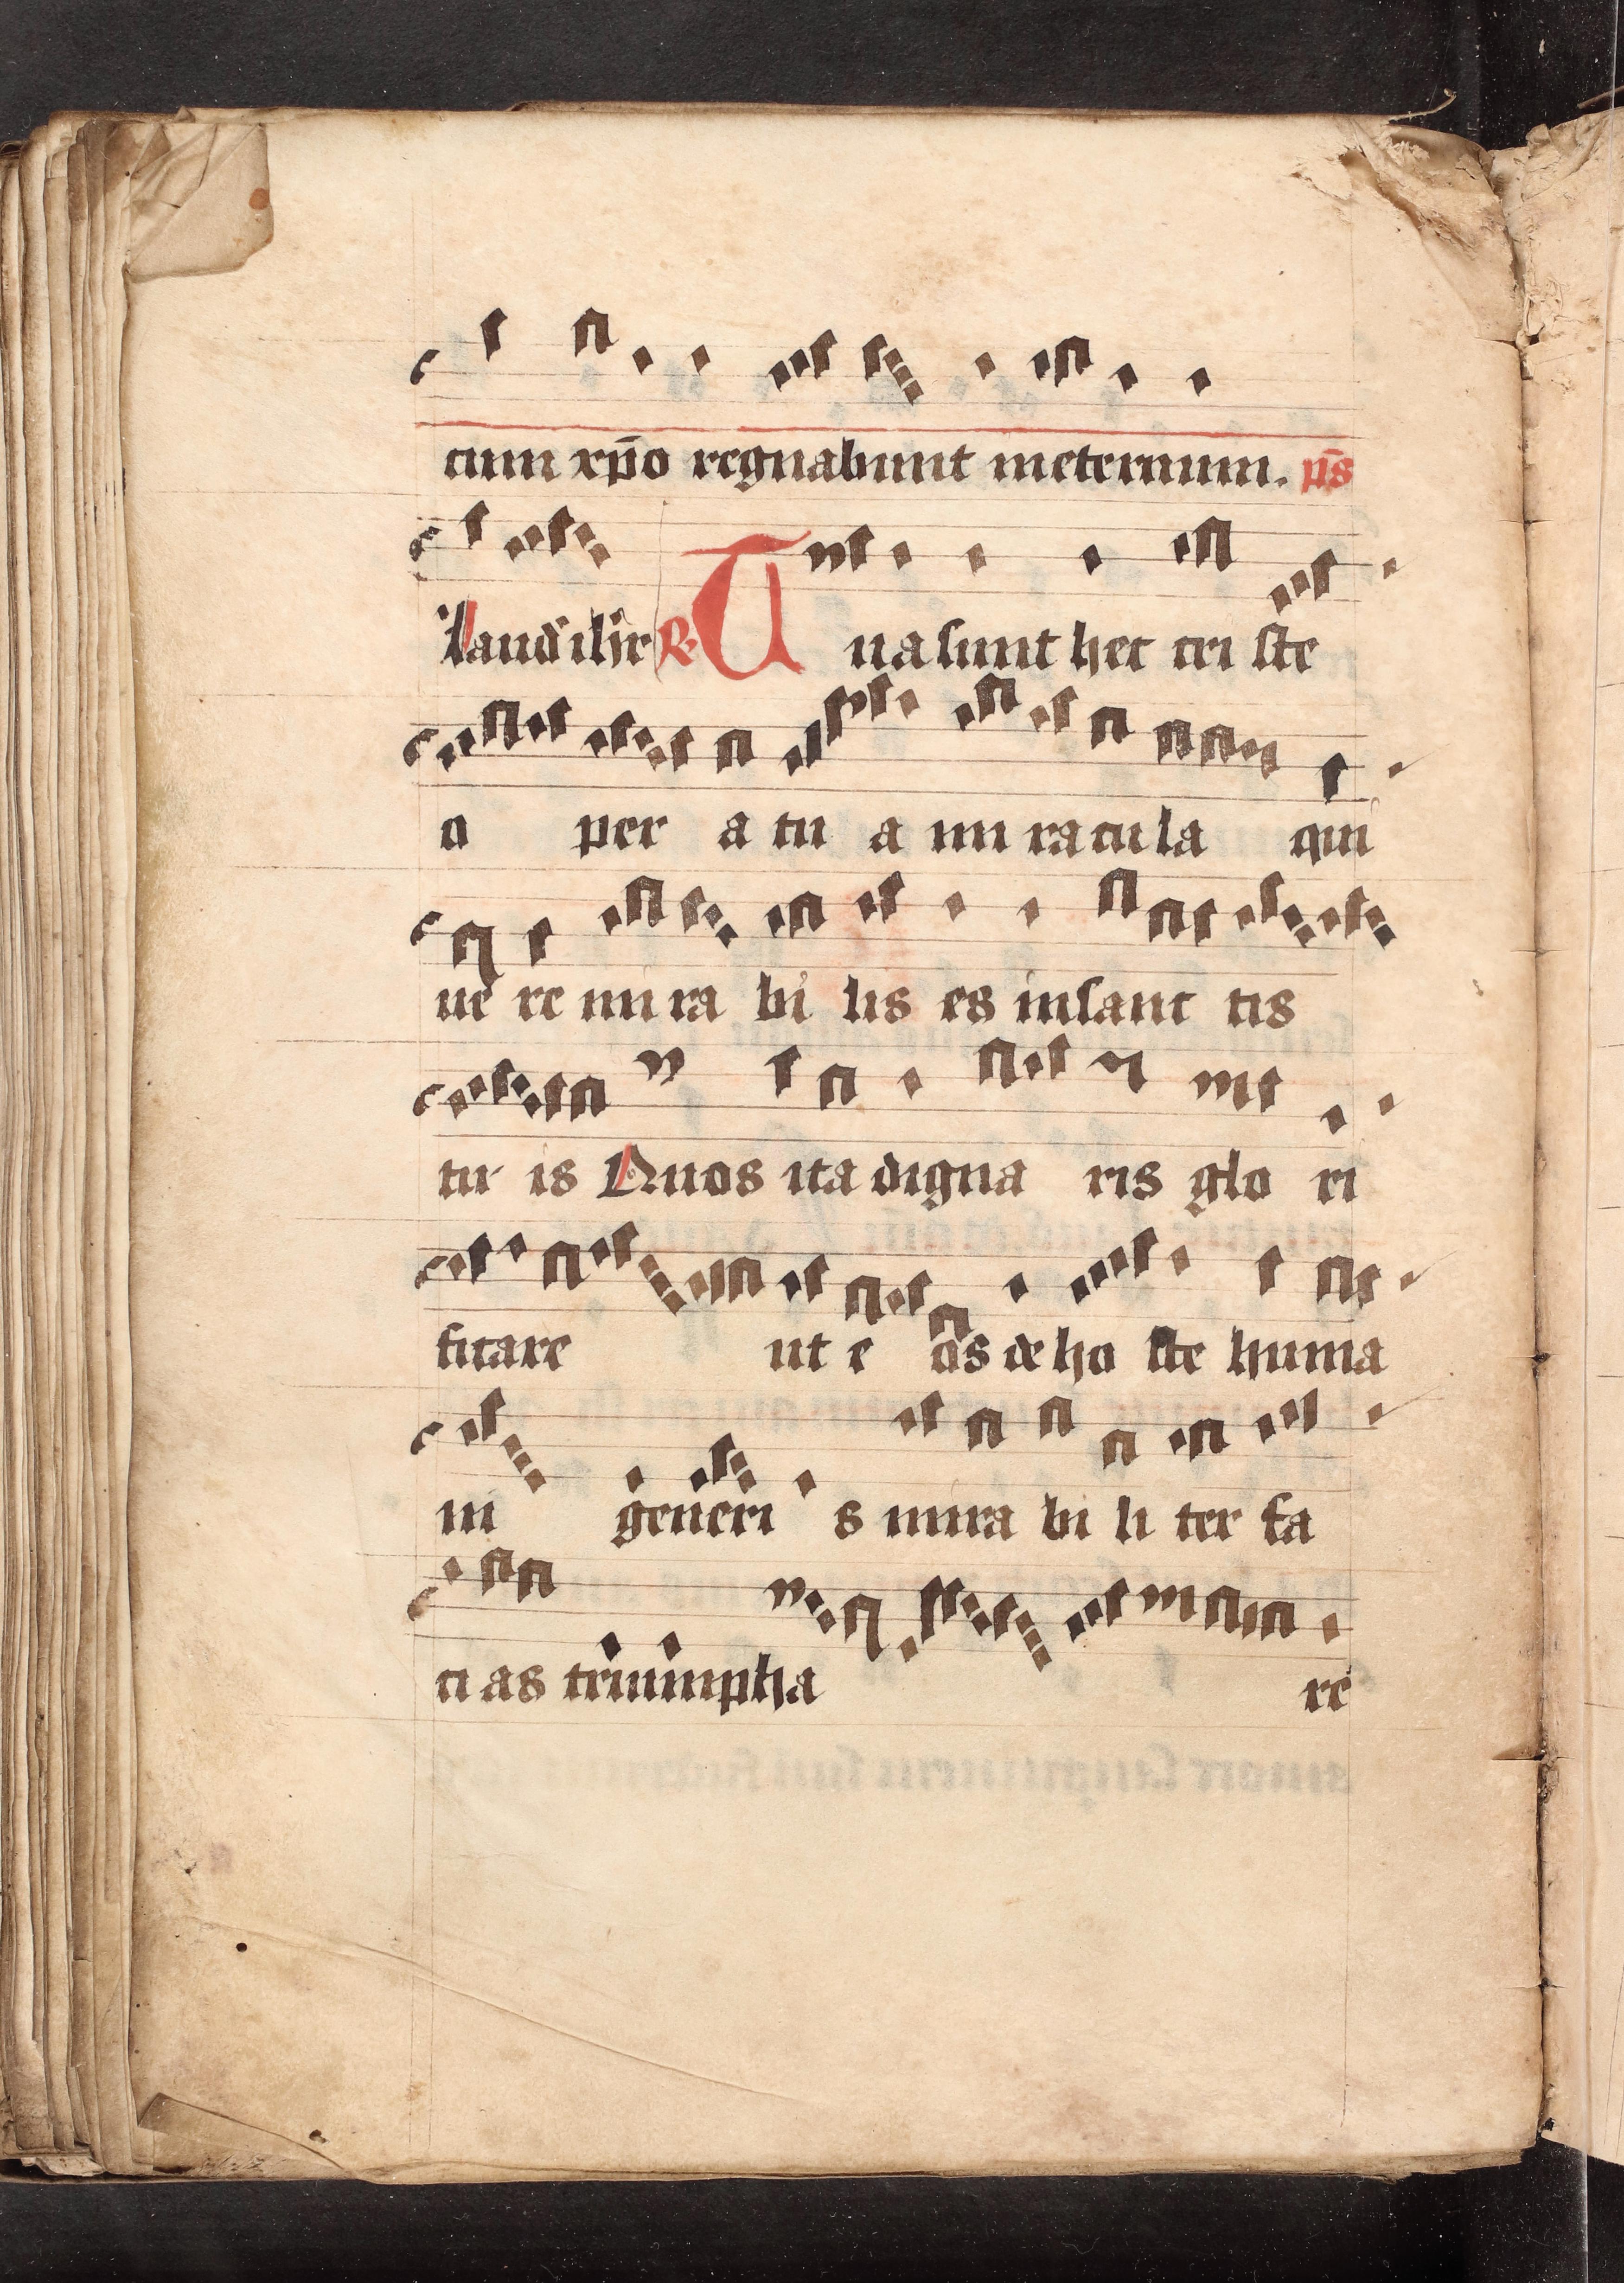 cum xp̄o regnabunt ineternum. p̄s
Laud̾ ilir̄ R. Tua sunt hec cri ste
o per a tu a mi racu la qui
ue re mi ra bi lis es insanc tis
tu is Quos ita digna ris glo ri
ficare ut e os de ho ste huma
ni generi s mira bi li ter fa
ci as triumpha re